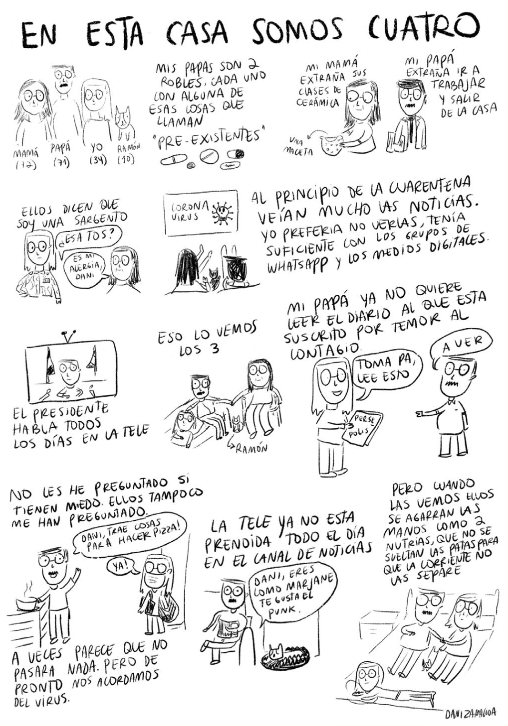 EN ESTA CASA SOMOS CUATRO
MAMÁ
PAPÁ
(71)
YO
(34)
RAMÓN
(10)
MIS PAPÁS SON 2
ROBLES, CADA UNO
CON ALGUNA DE
ESAS COSAS QUE
LLAMAN
"PRE-EXISTENTES"
MI MAMÁ
EXTRAÑA SUS
CLASES DE
CERÁMICA
UNA
MACETA
MI PAPÁ
EXTRAÑA IR A
TRABAJAR
Y SALIR
DE LA CASA
ELLOS DICEN QUE
SOY UNA SARGENTO
¿ESA TOS?
ES MI
ALERGIA,
DANI
CORONA
VIRUS
AL PRINCIPIO DE LA CUARENTENA
VEÍAN MUCHO LAS NOTICIAS.
YO PREFERIA NO VERLAS, TENÍA
SUFICIENTE CON LOS GRUPOS DE
WHATSAPP Y LOS MEDIOS DIGITALES.
EL PRESIDENTE
HABLA TODOS
LOS DÍAS EN LA TELE
ESO LO VEMOS
LOS 3
RAMÓN
MI PAPÁ YA NO QUIERE
LEER EL DIARIO AL QUE ESTA
SUSCRITO POR TEMOR AL
CONTAGIO
TOMA PA,
LEE ESTO
PERSE
POLIS
A VER
NO LES HE PREGUNTADO SI
TIENEN MIEDO. ELLOS TAMPOCO
ME HAN PREGUNTADO.
DANI, TRAE COSAS
PARA HACER PIZZA!
YA!
A VECES PARECE QUE NO
PASARA NADA. PERO DE
PRONTO NOS ACORDAMOS
DEL VIRUS.
LA TELE YA NO ESTA
PRENDIDA TODO EL DÍA
EN EL CANAL DE NOTICIAS
DANI, ERES
COMO MARJANE
TE GUSTA EL
PUNK.
PERO CUANDO
LAS VEMOS ELLOS
SE AGARRAN LAS
MANOS COMO 2
NUTRIAS, QUE NO SE
SUELTAN LAS PATAS PARA
QUE LA CORRIENTE NO
LAS SEPARE